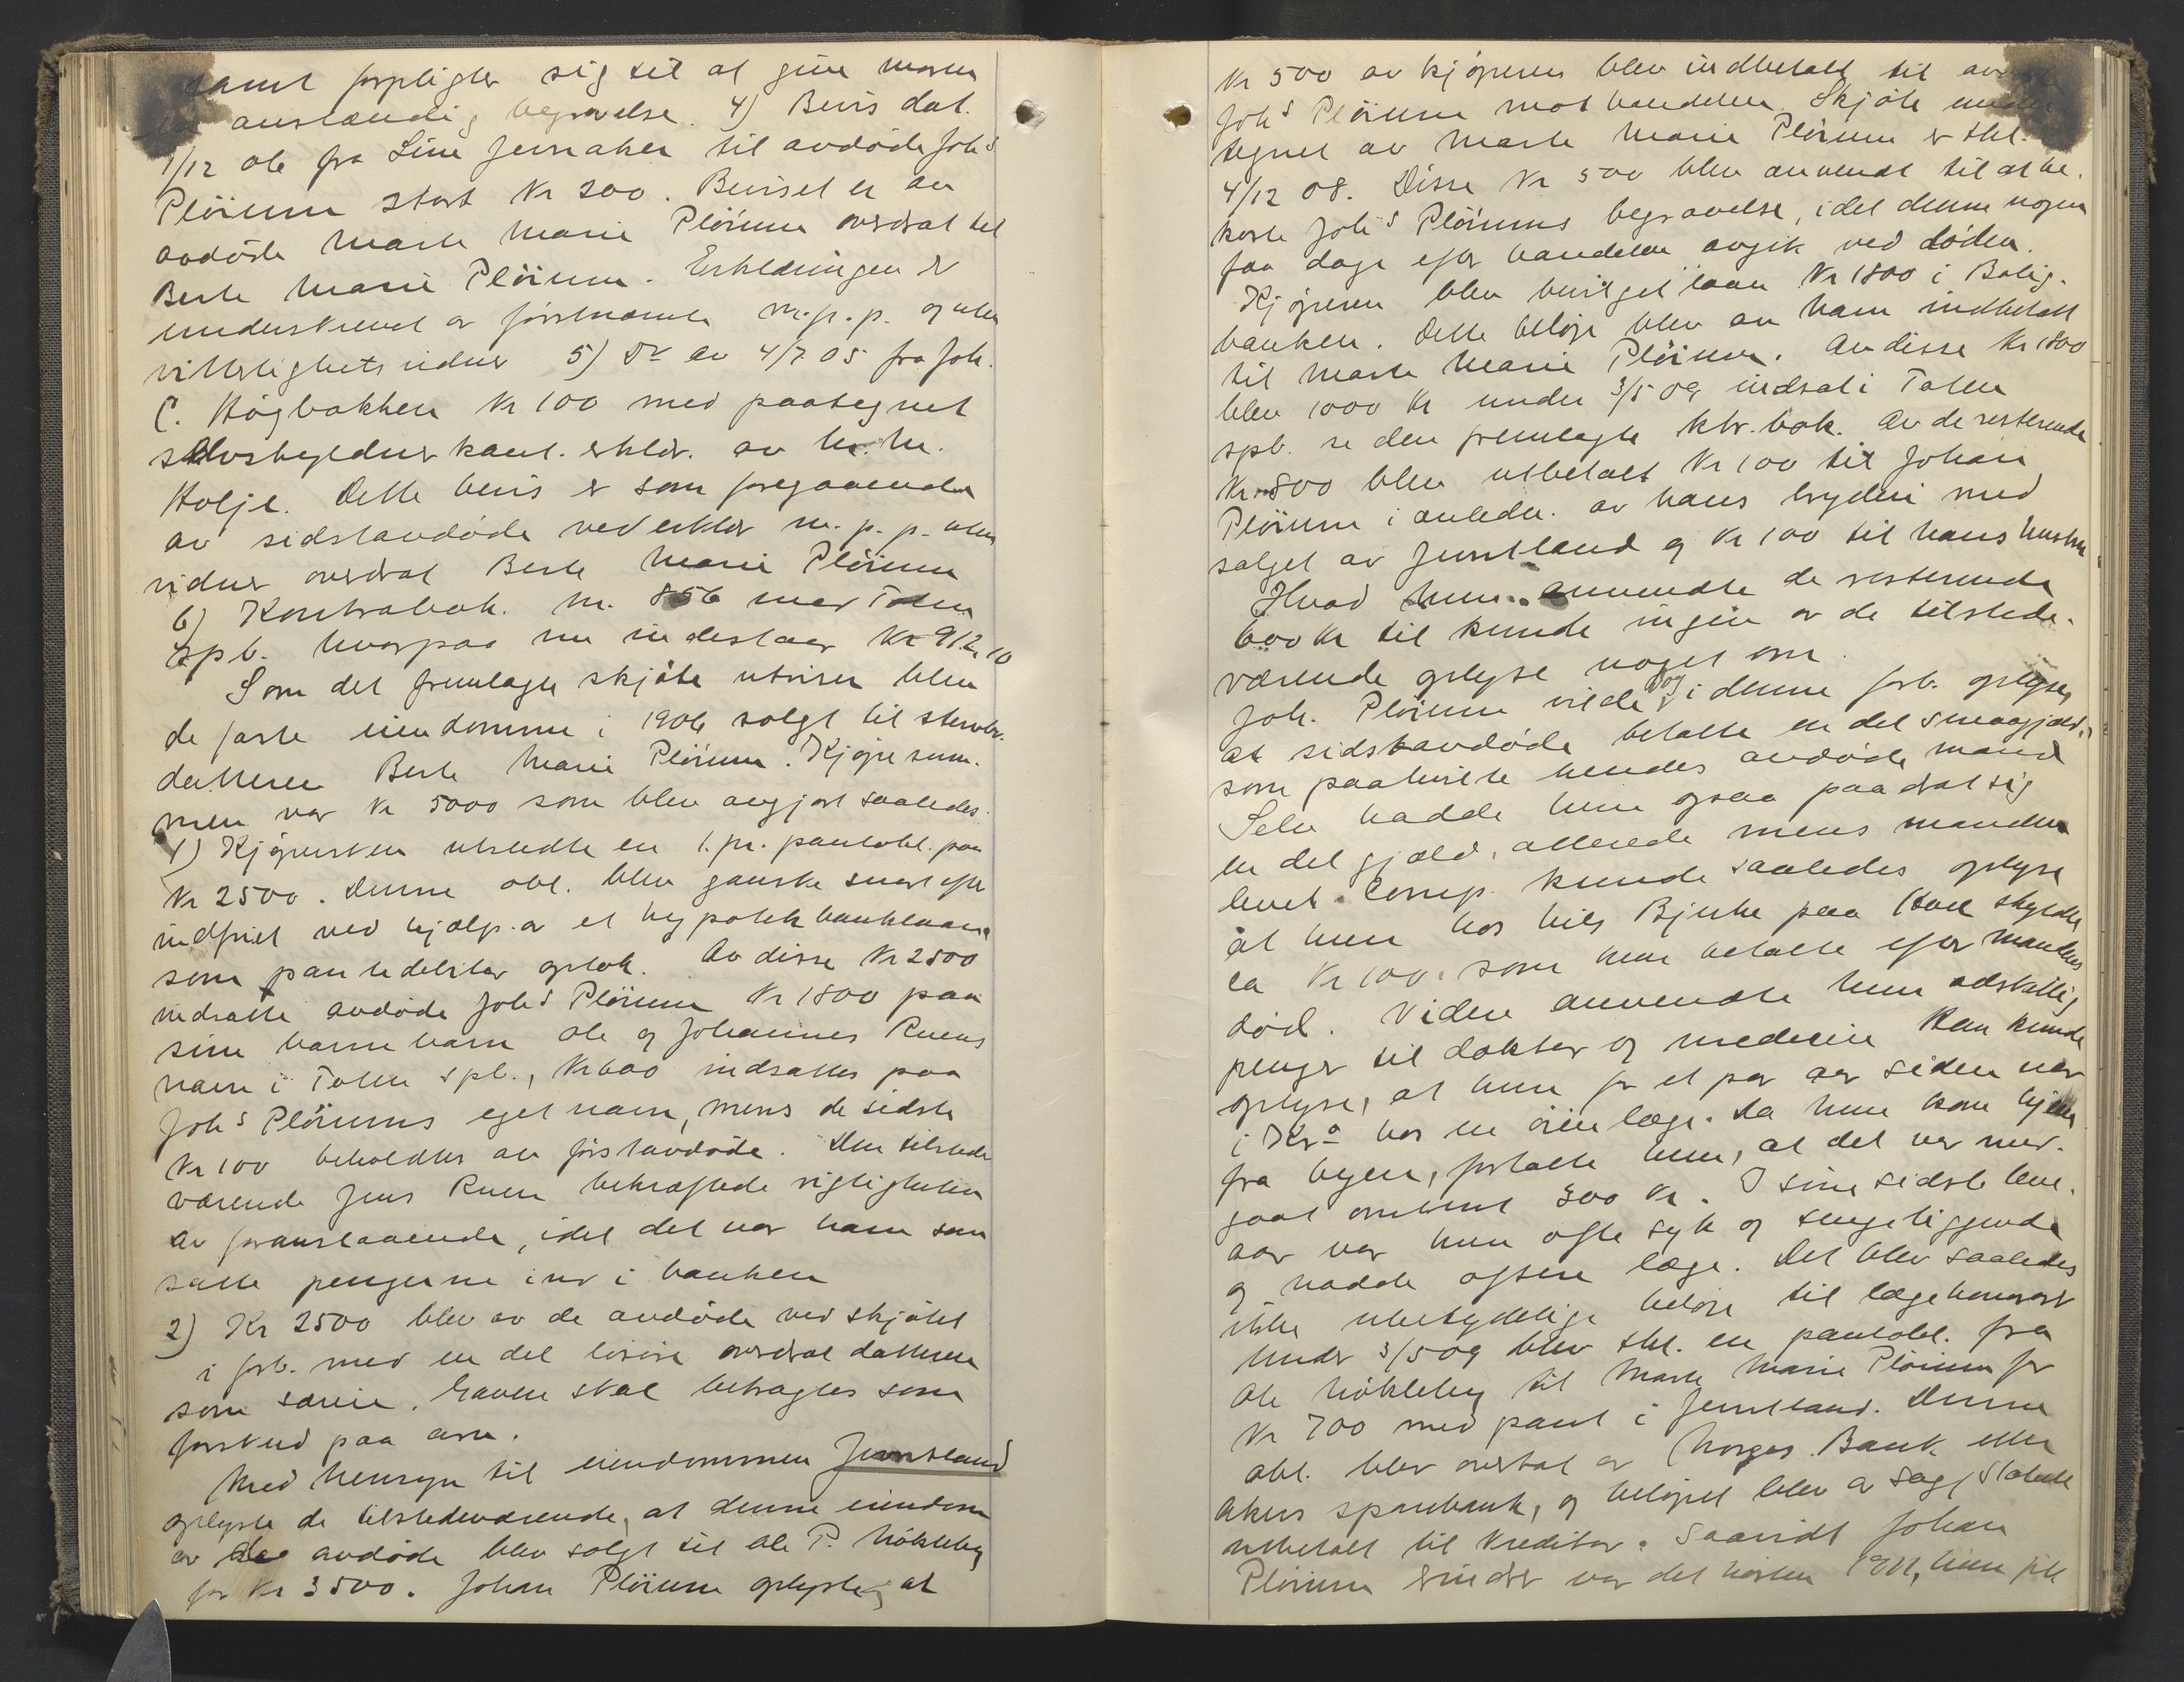 samt forpligter sig til at give moren
en anstændig begravelse. 4) Bevis dat.
1/12 06 fra Line Jernaker til avdöde Johs
Plöinum stort Kr 200. Beviset er av
avdöde Marte Marie Plöinum overdrat til
Berte Marie Plöinum. Erklæringen er
underskrevet av förstnævnte m.p.p. og uten
vitterlighetsvidner 5) Do av 4/7 05 fra Joh.
C. Högbakken Kr 100 med paategnet
selvskyldnerkaut. erklær. av M. M.
Holje. Dette bevis er som foregaaende
av sidstavdöde ved erklær m.p.p. uten
vidner overdrat Berte Marie Plöinum
6) Kontrabok. nr. 856 med Toten
spb. hvorpaa nu indestaar Kr 912,10
Som det fremlagte skjöte utviser blev
de faste eiendomme i 1906 solgt til stervbo-
datteren Berte Marie Plöinum. Kjöpesum-
men var Kr 5000 som blev avgjort saaledes.
1) Kjöpersken utstedte en 1. pr. pantobl. paa
Kr 2500. Denne obl. blev ganske snart efter
indfriet ved hjælp av et hypotekbanklaan
som pantedebitor optok. Av disse Kr 2500
indsatte avdöde Johs Plöinum Kr 1800 paa
sine barnebarn Ole og Johannes Ruens
navn i Toten spb., Kr 600 indsattes paa
Johs Plöinums eget navn, mens de sidste
Kr 100 beholdtes av förstavdöde. Den tilstede
værende Jens Ruen bekræftede rigtigheten
av foranstaaende, idet det var ham som
satte pengene ind i banken
2) Kr 2500 blev av de avdöde ved skjötet
i forb. med en del lösöre overdrat datteren
som særeie. Gaven skal betragtes som
forskud paa arv.
Med hensyn til eiendommen Jernstland
oplyste de tilstedeværende, at denne eiendom
av de avdöde blev solgt til Ole P. Nökleby
for Kr 3500. Johan Plöinum oplyste, at
Kr 500 av kjöperen blev indbetalt til avdöde
Johs Plöinum mot handelen. Skjöte under
tegnet av Marte Marie Plöinum er thl.
4/12 08. Disse Kr 500 blev anvendt til at be-
koste Johs Plöinums begravelse, idet denne nogen
faa dage efter handelen avgik ved döden.
Kjöperen blev bevilget laan Kr 1800 i Bolig-
banken. Dette belöp blev av ham indbetalt
til Marte Marie Plöinum. Av disse Kr 1800
blev 1000 Kr under 3/5 09 indsat i Toten
spb. se den fremlagte ktr. bok. Av de resterende
Kr 800 blev utbetalt Kr 100 til Johan
Plöinum i anledn. av hans bryderi med
salget av Jernstland og Kr 100 til hans hustru
Hvad hun anvendte de resterende
600 Kr til kunde ingen av de tilstede-
værende oplyse noget om.
Joh. Plöinum vilde og i denne forb. oplyse,
at sidstavdöde betalte en del smaagjæld,
som paahvilte hendes avdöde mand
Selv hadde hun ogsaa paadrat sig
en del gjæld, allerede mens manden
levet. Comp. kunde saaledes oplyse
at hun hos Nils Bjerke paa Hoel skyldte
ca Kr 100, som hun betalte efter mandens
död. Videre anvendte hun adskillig
penger til doktor og medicin Han kunde
oplyse, at hun for et par aar siden var
i Kra hos en öienlæge. Da hun kom hjem
fra byen, fortalte hun, at det var med-
gaat omtrent 300 Kr. I sine sidste leve-
aar var hun ofte syk og sengeliggende
og hadde oftere læge. Det blev saaledes
ikke ubetydelige belöp til lægehonorar
Under 3/5 09 blev thl. en pantobl. fra
Ole Nökleby til Marte Marie Plöinum for
Kr 700 med pant i Jernstland. Denne
obl. blev overtat av Norges Bank eller
Akers sparebank, og belöpet blev av sagf
utbetalt til kreditor. Saavidt Johan
Plöinum erindrer var det hösten 1911, hun fik